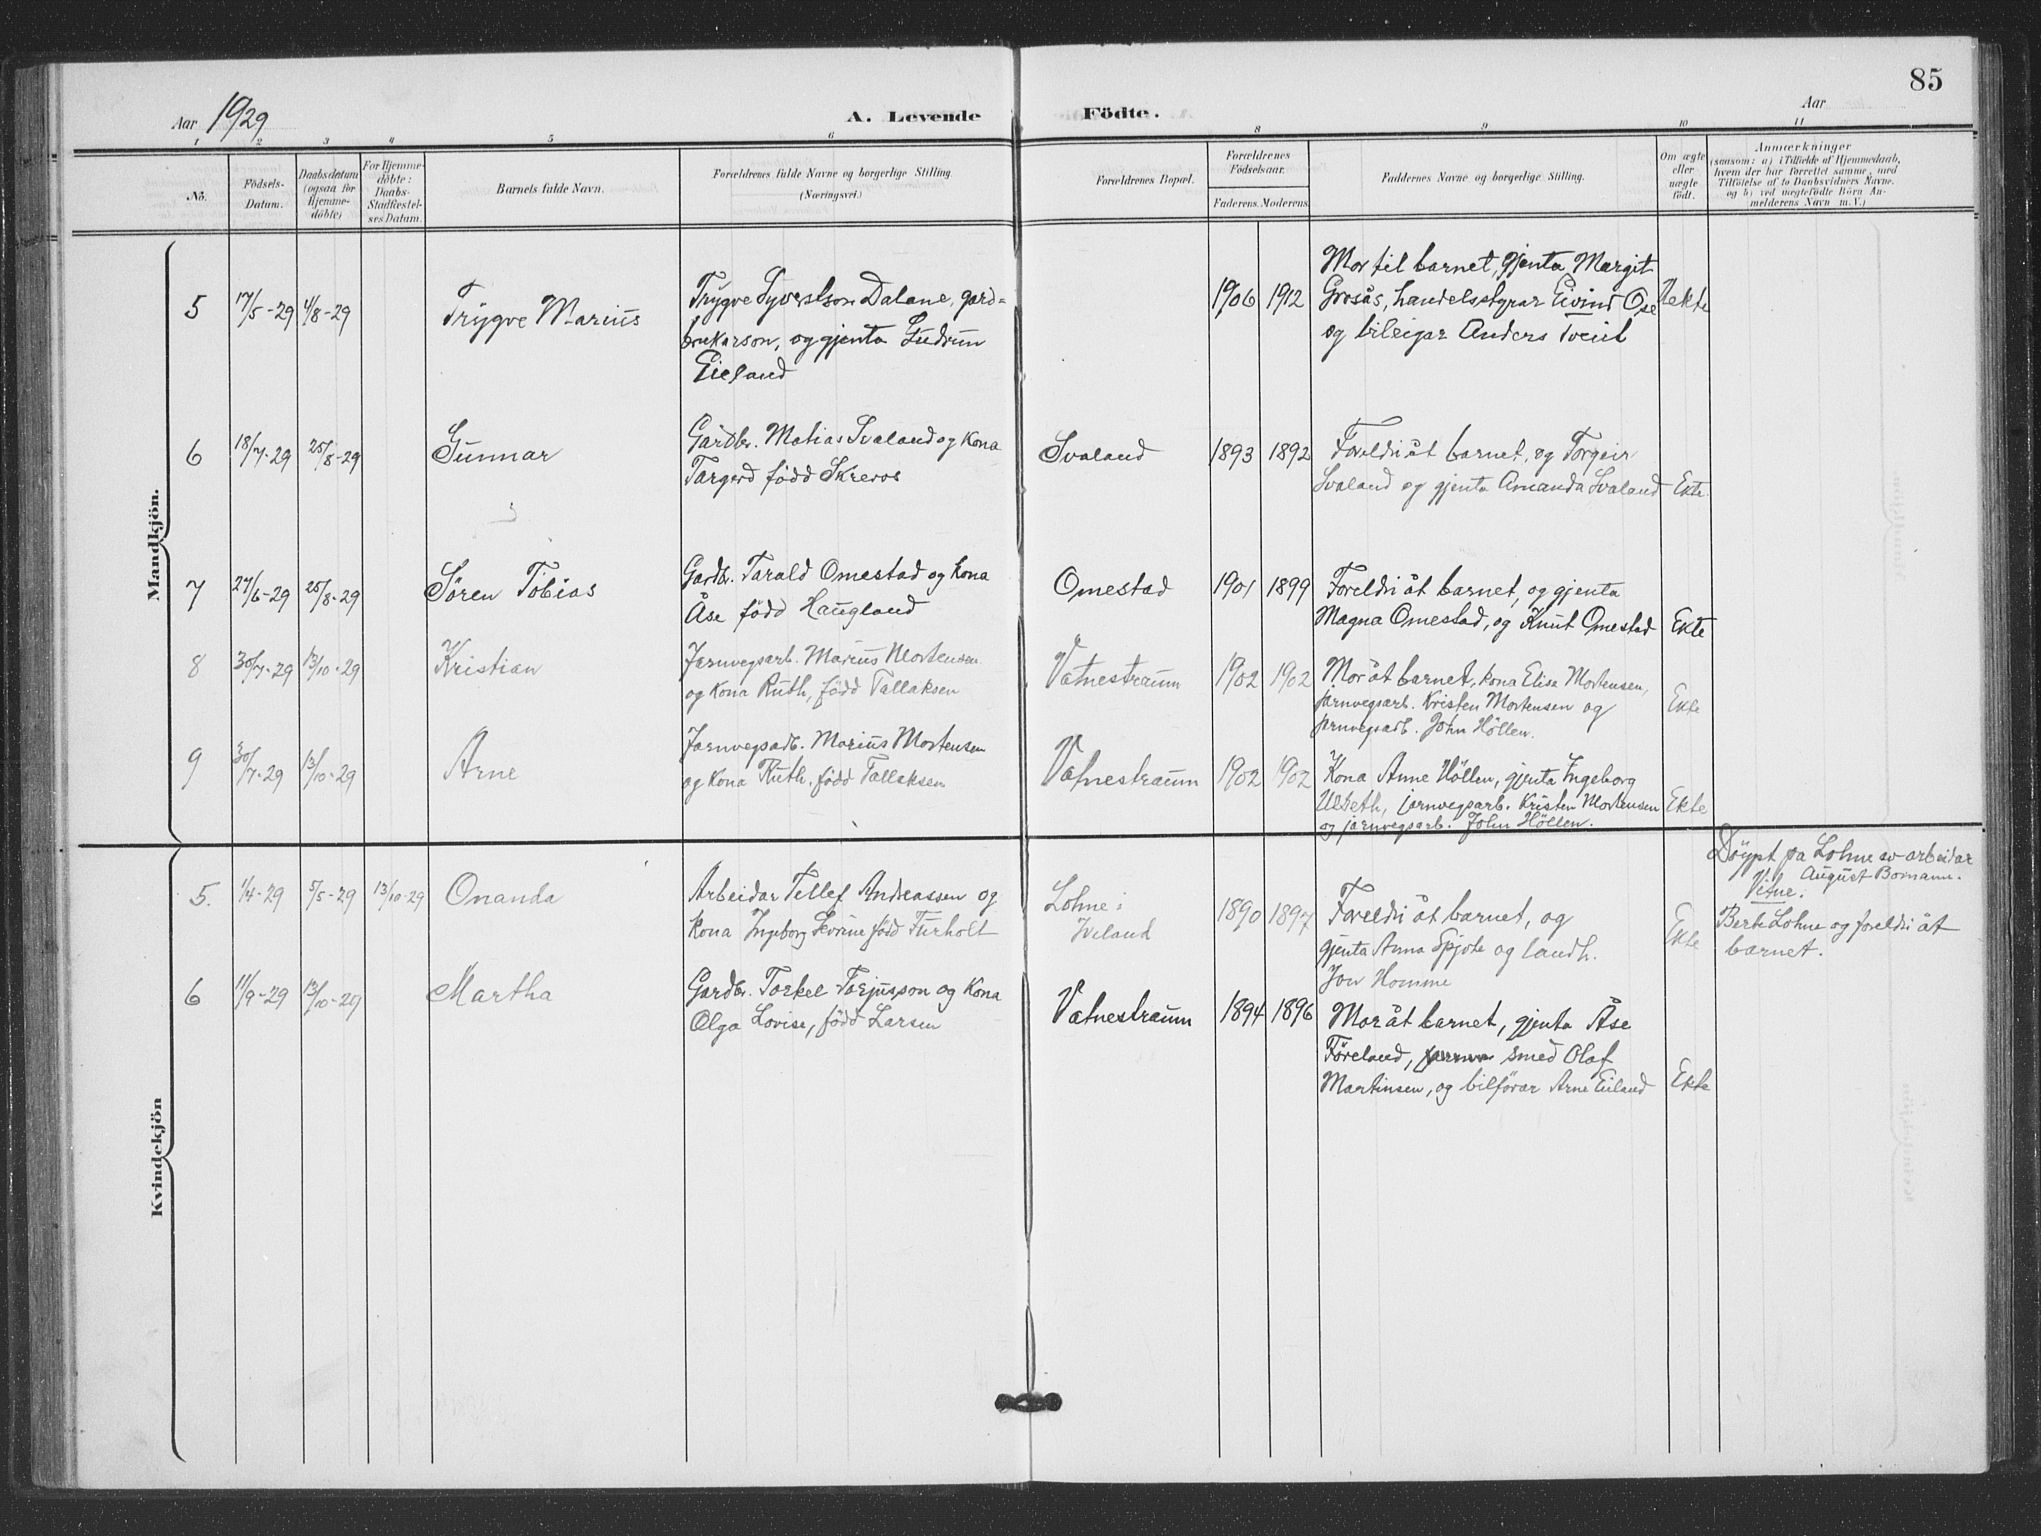 85
Aar 1929
A. Levende Födte.
Aar
1 2 3 4 5 6 8 9 10 11
No.
Födsels-Datum.
Daabsdatum (ogsaa for Hjemme-döbte)
For Hjemme-döbte: Daabs-Stadfæstel-ses Datum.
Barnets fulde Navn.
Forældrenes fulde Navne og borgerlige Stilling (Næringsvei.)
Forældrenes Bopæl.
Forældrenes Födselsaar.
Faderens. Moderens.
Faddernes Navne og borgerlige Stilling.
Om ægte eller uægte födt.
Anmærkninger
(saasom: a) i Tilfælde af Hjemmedaab, hvem der har forrettet samme, med Tilföielse af to Daabsvidners Navne. og b) ved uægtefödte Börn An-melderens Navn m. V.)
Mandkjön.
5 17/5-29 4/8-29 Trygve Marius
Trygve Syvertson Dalane, gard=
brukarson, og gjenta Gudrun
Eieland
1906 1912
Mor til barnet, gjenta Margit
Grosås, handelsstyrar Eivind Ose
og bileigar Anders Tveit
Uekte
6 18/7-29 25/8-29 Gunnar
Gardbr. Matias Svaland og kona
Targerd född Skreros
Svaland 1893 1892
Foreldri åt barnet, og Torgeir
Svaland og gjenta Amanda Svaland Ekte.
7 27/6-29 25/8-29 Sören Tobias
Gardbr. Tarald Omestad og kona
Åse född Haugland
Omestad 1901 1899
Foreldri åt barnet, og gjenta
Magna Omestad, og Knut Omestad Ekte
8 30/7-29 13/10-29 Kristian
Jarnvegsarb. Marius Mortensen
og kona Ruth, född Tallaksen
Vatnestraum 1902 1902
Mor åt barnet, kona Elise Mortensen,
jarnvegsarb. Kristen Mortensen og
jarnvegsarb. John Höllen.
Ekte
9 30/7-29 13/10-29 Arne
Jarnvegsarb. Marius Mortensen
og kona Ruth, född Tallaksen
Vatnestraum 1902 1902
Kona Anne Höllen, gjenta Ingeborg
jarnvegsarb. Kristen Mortensen
og jarnvegsarb. John Höllen.
Ekte
Kvindekjön
5. 1/4-29 5/5-29 13/10-29 Onanda
Arbeidar Tellef Andreassen og
kona Ingeborg Severine född Furholt
Lohne i
Iveland
1890 1897
Foreldri åt barnet, og
gjenta Anna Spjote og landh.
Jon Homme
Ekte
Döypt på Lohne av arbeidar
August Bomann.
Vitne.
Berte Lohne og foreldri åt
barnet.
6 11/9-29 13/10-29 Martha
Gardbr. Torkel Torjusson og kona
Olga Lovise, född Larsen
Vatnestraum 1894 1896
Mor åt barnet, gjenta Åse
Föreland, smed Olaf
Martinsen, og bilförar Arne Eieland
Ekte